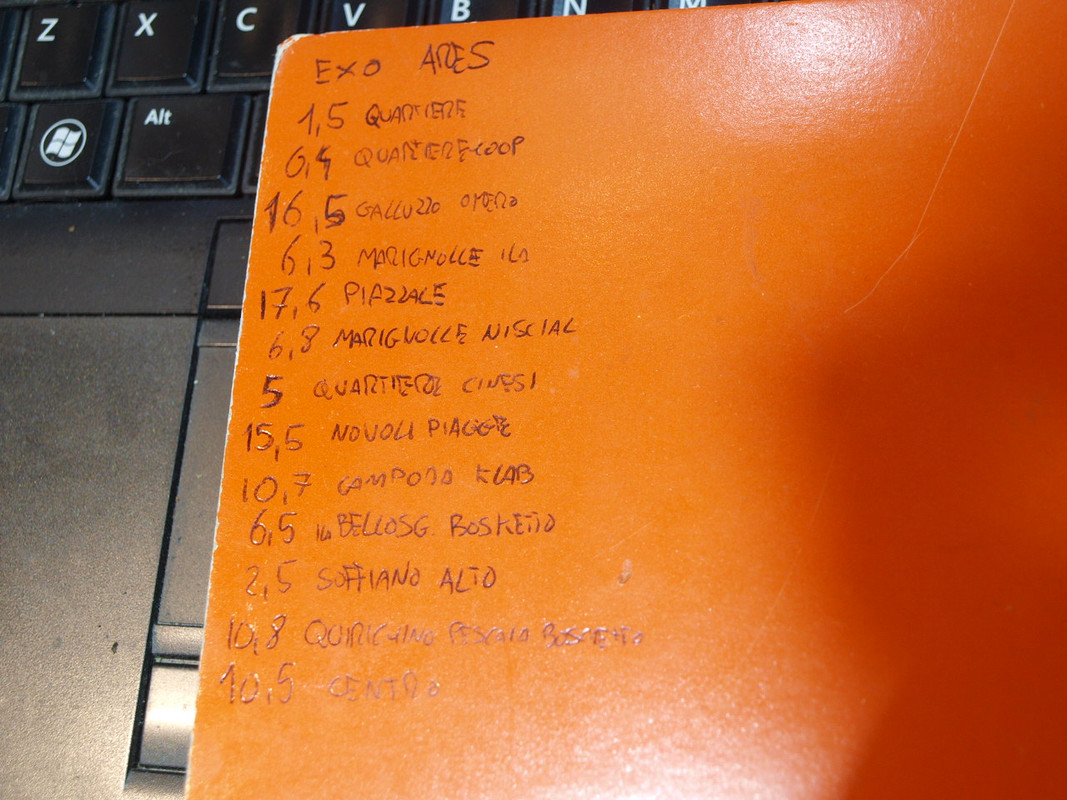 Z X C V B N M
Alt
EXO ARES
1,5 QUARTIERE
6,4 QUARTIERE COOP
16,5 GALLUZZO OMERO
6,3 MARIGNOLLE
17,6 PIAZZALE
6,8 MARIGNOLLE NISCIAL
5 QUARTIERE CINESI
15,5 NOVOLI PIAGGE
10,7 CAMPODA KLAB
6,5 BELLOSG. BOSKETTO
2,5 SOFFIANO ALTO
10,8 BOSCHETTO
10,5 CENTRO